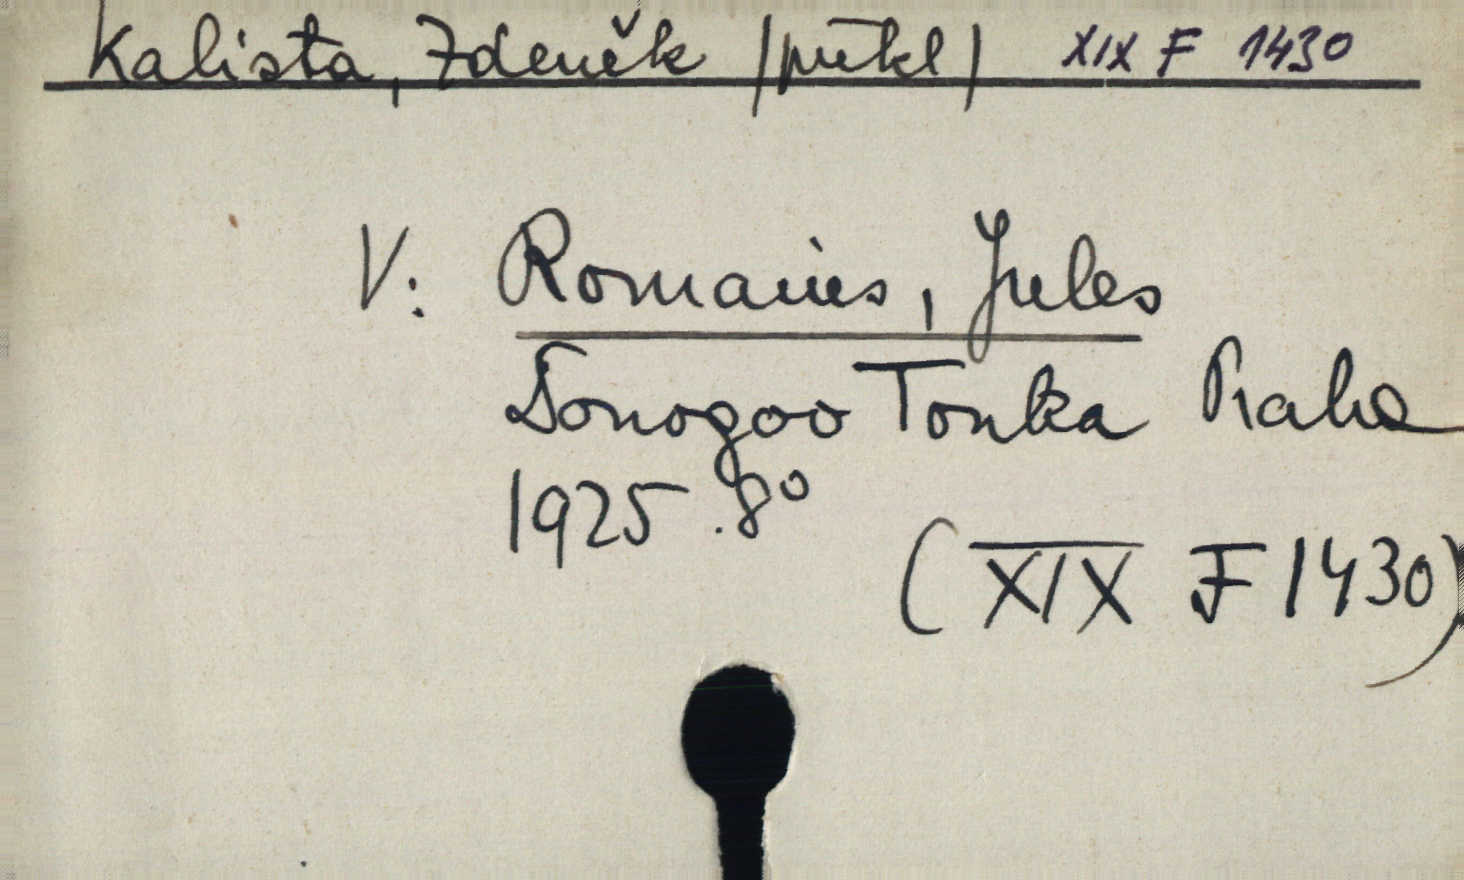 Kalista, Zdeněk /překl/ XIX F 1430
V: Romains, Jules
Donogoo Tonka Praha
1925. 8°
(XIX F 1430)